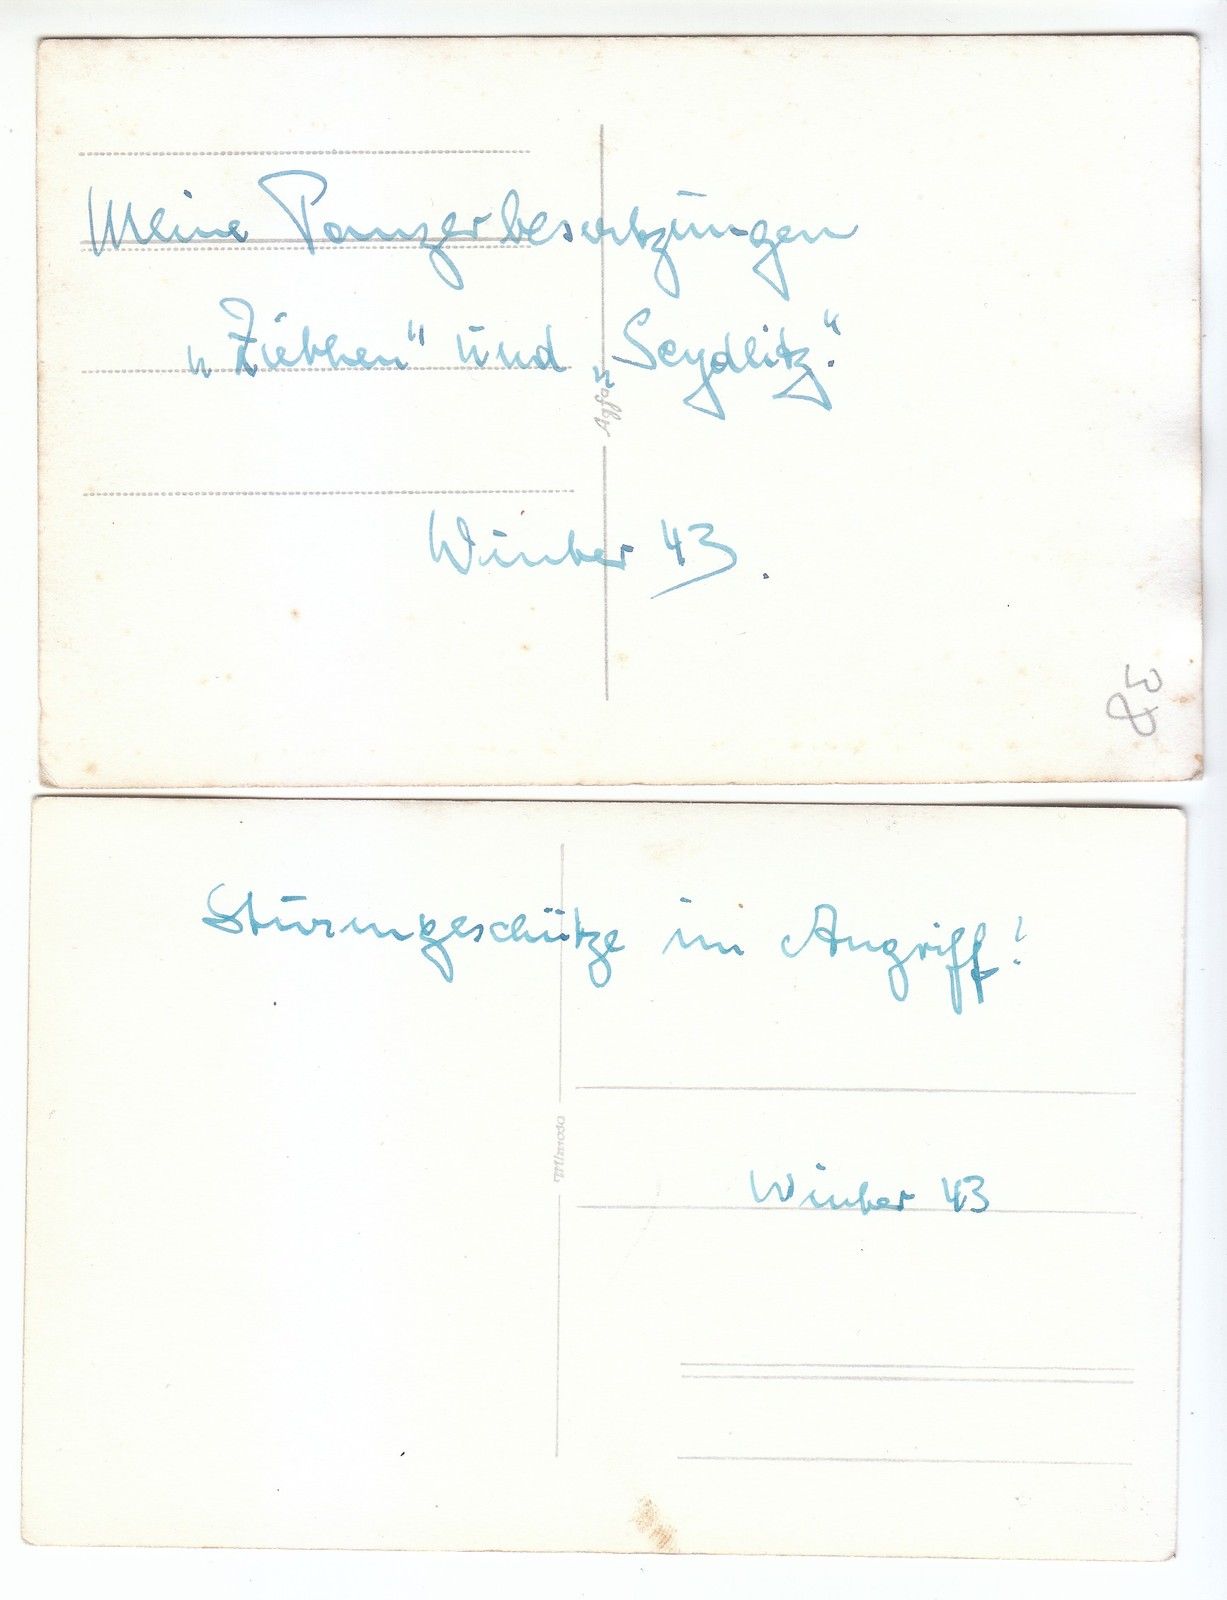 Meine Panzerbesatzungen
„Ziethen“ und „Seydlitz.“
Agfa
Winter 43.
38
Sturmgeschütze im Angriff!
Mimosa
Winter 43